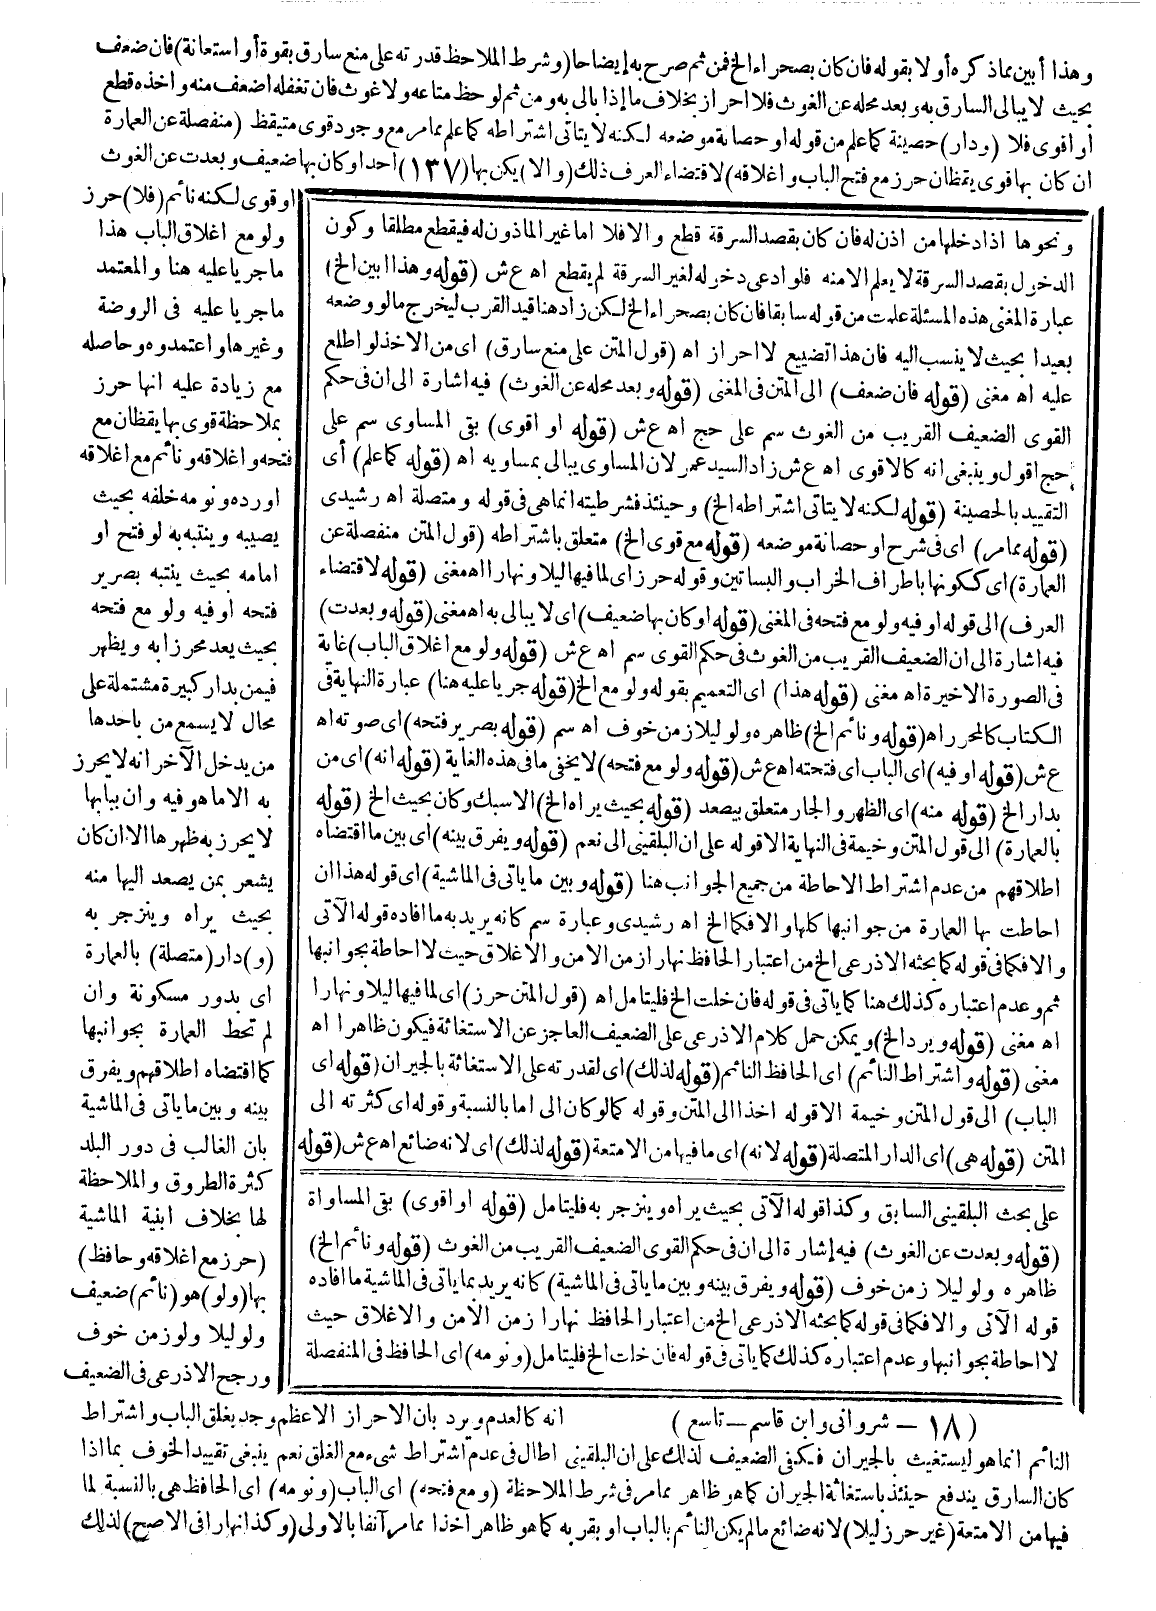 وهذا أبين بماذكره أولا بقوله فان كان بصحراء الخ فمن ثم صرح به إيضاحا (وشرط الملاحظ قدرته على منع سارق بقوة أو استعانة) فان ضعف
بحيث لا يبالى السارق به وبعد محله عن الغوث فلا احراز بخلاف ما إذا بالى به ومن ثم لو حظ متاعه ولا غوث فان تغفله اضعف منه واخذه قطع
او اقوى فلا (ودار) حصينة كما علم من قوله او حصانة موضعه لكنه لا يتاتى اشتراطه كما علم مما مر مع وجود قوى متيقظ (منفصلة عن العمارة
ان كان بها قوى يقظان حرز مع فتح الباب واغلاقه) لاقتضاء العرف ذلك (والا) يكن بها (١٣٧) احد او كان بها ضعيف وبعدت عن الغوث
او قوى لكنه نائم (فلا) حرز
ولو مع اغلاق الباب هذا
ماجريا عليه هنا والمعتمد
ماجريا عليه فى الروضة
وغيرها واعتمدوه وحاصله
مع زيادة عليه انها حرز
بملاحظة قوى بها يقظان مع
فتحه واغلاقه ونائم مع اغلاقه
اورده ونومه خلفه بحيث
يصيبه وينتبه به لو فتح او
امامه بحيث ينتبه بصرير
فتحه اوفيه ولو مع فتحه
بحيث يعد محرزا به ويظهر
فيمن بدار كبيرة مشتملة على
محال لا يسمع من باحدها
من يدخل الآخر انه لا يحرز
به الا ماهو فيه وان ببابها
لا يحرز به ظهرها الا ان كان
يشعر بمن يصعد اليها منه
بحيث يراه وينزجر به
(و) دار (متصلة) بالعمارة
اى بدور مسكونة وان
لم تحط العمارة بجوانبها
كما اقتضاه اطلاقهم ويفرق
بينه وبين ما ياتى فى الماشية
بان الغالب فى دور البلد
كثرة الطروق والملاحظة
لها بخلاف ابنية الماشية
(حرز مع اغلاقه وحافظ)
بها (ولو) هو (نائم) ضعيف
ولو ليلا ولو زمن خوف
ورجح الاذرعى فى الضعيف
ونحوها اذا دخلها من اذن له فان كان بقصد السرقة قطع والا فلا اما غير الماذون له فيقطع مطلقا وكون
الدخول بقصد السرقة لا يعلم الا منه فلو ادعى دخوله لغير السرقة لم يقطع اه ع ش (قوله وهذا ابين الخ)
عبارة المغنى هذه المسئلة علمت من قوله سابقا فان كان بصحراء الخ لكن زاد هنا قيد القرب ليخرج مالو وضعه
بعيدا بحيث لا ينسب اليه فان هذا تضييع لا احراز اه (قول المتن على منع سارق) اى من الاخذ لو اطلع
عليه اه مغنى (قوله فان ضعف) الى المتن فى المغنى (قوله وبعد محله عن الغوث) فيه اشارة الى ان فى حكم
القوى الضعيف القريب من الغوث سم على حج اه ع ش (قوله او اقوى) بقى المساوى سم على
حج اقول وينبغى انه كالاقوى اه ع ش زاد السيد عمر لان المساوى يبالى بمساويه اه (قوله كما علم) أى
التقييد بالحصينة (قوله لكنه لا يتاتى اشتراطه الخ) وحينئذ فشرطيته انما هى فى قوله ومتصلة اه رشيدى
(قوله مما مر) اى فى شرح او حصانة موضعه (قوله مع قوى الخ) متعلق باشتراطه (قول المتن منفصلة عن
العمارة) اى ككونها باطراف الخراب والبساتين وقوله حرز اى لما فيها ليلا ونهارا اه مغنى (قوله لاقتضاء
العرف) الى قوله اوفيه ولو مع فتحه فى المغنى (قوله او كان بها ضعيف) اى لا يبالى به اه مغنى (قوله وبعدت)
فيه اشارة الى ان الضعيف القريب من الغوث فى حكم القوى سم اه ع ش (قوله ولو مع اغلاق الباب) غاية
فى الصورة الاخيرة اه مغنى (قوله هذا) اى التعميم بقوله ولو مع الخ (قوله جريا عليه هنا) عبارة النهاية فى
الكتاب كالمحرر اه (قوله ونائم الخ) ظاهره ولو ليلا زمن خوف اه سم (قوله بصرير فتحه) اى صوته اه
ع ش (قوله اوفيه) اى الباب اى فتحته اه ع ش (قوله ولو مع فتحه) لا يخفى ما فى هذه الغاية (قوله انه) اى من
بدار الخ (قوله منه) اى الظهر والجار متعلق بيصعد (قوله بحيث يراه الخ) الاسبك وكان بحيث الخ (قوله
بالعمارة) الى قول المتن وخيمة فى النهاية الا قوله على ان البلقينى الى نعم (قوله ويفرق بينه) اى بين ما اقتضاه
اطلاقهم من عدم اشتراط الاحاطة من جميع الجوانب هنا (قوله وبين ما ياتى فى الماشية) اى قوله هذا ان
احاطت بها العمارة من جوانبها كلها والا فكما الخ اه رشيدى وعبارة سم كانه يريد به ما افاده قوله الآتى
والا فكما فى قوله كما بحثه الاذرعى الخ من اعتبار الحافظ نهارا زمن الامن والاغلاق حيث لا احاطة بجوانبها
ثم وعدم اعتباره كذلك هنا كما ياتى فى قوله فان خلت الخ فليتامل اه (قول المتن حرز) اى لما فيها ليلا ونهارا
اه مغنى (قوله ويرد الخ) ويمكن حمل كلام الاذرعى على الضعيف العاجز عن الاستغاثة فيكون ظاهرا اه
مغنى (قوله واشتراط النائم) اى الحافظ النائم (قوله لذلك) اى لقدرته على الاستغاثة بالجيران (قوله اى
الباب) الى قول المتن وخيمة الا قوله اخذا الى المتن وقوله كما لو كان الى اما بالنسبة وقوله اى كثرته الى
المتن (قوله هى) اى الدار المتصلة (قوله لانه) اى ما فيها من الامتعة (قوله لذلك) اى لانه ضائع اه ع ش (قوله
على بحث البلقينى السابق وكذا قوله الآتى بحيث يراه وينزجر به فليتامل (قوله او اقوى) بقى المساواة
(قوله وبعدت عن الغوث) فيه إشارة الى ان فى حكم القوى الضعيف القريب من الغوث (قوله ونائم الخ)
ظاهره ولو ليلا زمن خوف (قوله ويفرق بينه وبين ما ياتى فى الماشية) كانه يريد بما ياتى فى الماشية ما افاده
قوله الآتى والا فكما فى قوله كما بحثه الاذرعى الخ من اعتبار الحافظ نهارا زمن الامن والاغلاق حيث
لا احاطة بجوانبها وعدم اعتباره كذلك كما ياتى فى قوله فان خلت الخ فليتامل (ونومه) اى الحافظ فى المنفصلة
(١٨ – شروانى وابن قاسم – تاسع)
انه كالعدم ويرد بان الاحراز الاعظم وجد بغلق الباب واشتراط
النائم انما هو ليستغيث بالجيران فكفى الضعيف لذلك على ان البلقينى اطال فى عدم اشتراط شىء مع الغلق نعم ينبغى تقييد الخوف بما اذا
كان السارق يندفع حينئذ باستغاثة الجيران كما هو ظاهر مما مر فى شرط الملاحظة (ومع فتحه) اى الباب (ونومه) اى الحافظ هى بالنسبة لما
فيها من الامتعة (غير حرز ليلا) لانه ضائع مالم يكن النائم بالباب او بقربه كما هو ظاهر اخذا مما مر آنفا بالاولى (وكذا نهارا فى الاصح) لذلك